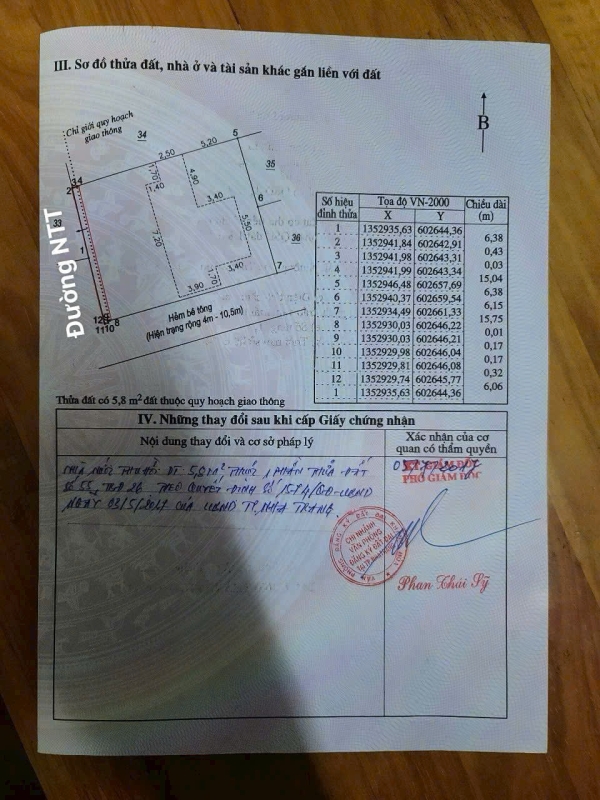 III. Sơ đồ thửa đất, nhà ở và tài sản khác gắn liền với đất
Chỉ giới quy hoạch
giao thông
34
2,50
5,20
5
35
B
2
3
4
1,70
1,40
4,90
3,40
6
33
Đường NTT
1
7,20
5,50
36
3,40
1,70
3,90
7
12
9
11
10
8
Hẻm bê tông
(Hiện trạng rộng 4m - 10,5m)
Số hiệu đỉnh thửa Tọa độ VN-2000 Chiều dài (m)
X Y
1 1352935,63 602644,36
6,38
2 1352941,84 602642,91
0,43
3 1352941,98 602643,31
0,03
4 1352941,99 602643,34
15,04
5 1352946,48 602657,69
6,38
6 1352940,37 602659,54
6,15
7 1352934,49 602661,33
15,75
8 1352930,03 602646,22
0,01
9 1352930,03 602646,21
0,17
10 1352929,98 602646,04
0,17
11 1352929,81 602646,08
0,32
12 1352929,74 602645,77
6,06
1 1352935,63 602644,36
Thửa đất có 5,8 m² đất thuộc quy hoạch giao thông
IV. Những thay đổi sau khi cấp Giấy chứng nhận
Nội dung thay đổi và cơ sở pháp lý
Xác nhận của cơ quan có thẩm quyền
Nhà nước thu hồi DT 5,8m² thuộc 1 phần thửa đất
số 55, TBĐ 26 theo Quyết định số 1574/QĐ-UBND
ngày 03/5/2017 của UBND TP. Nha Trang.
PHÓ GIÁM ĐỐC
CHI NHÁNH
VĂN PHÒNG
ĐĂNG KÝ ĐẤT ĐAI
Phan Thái Sỹ